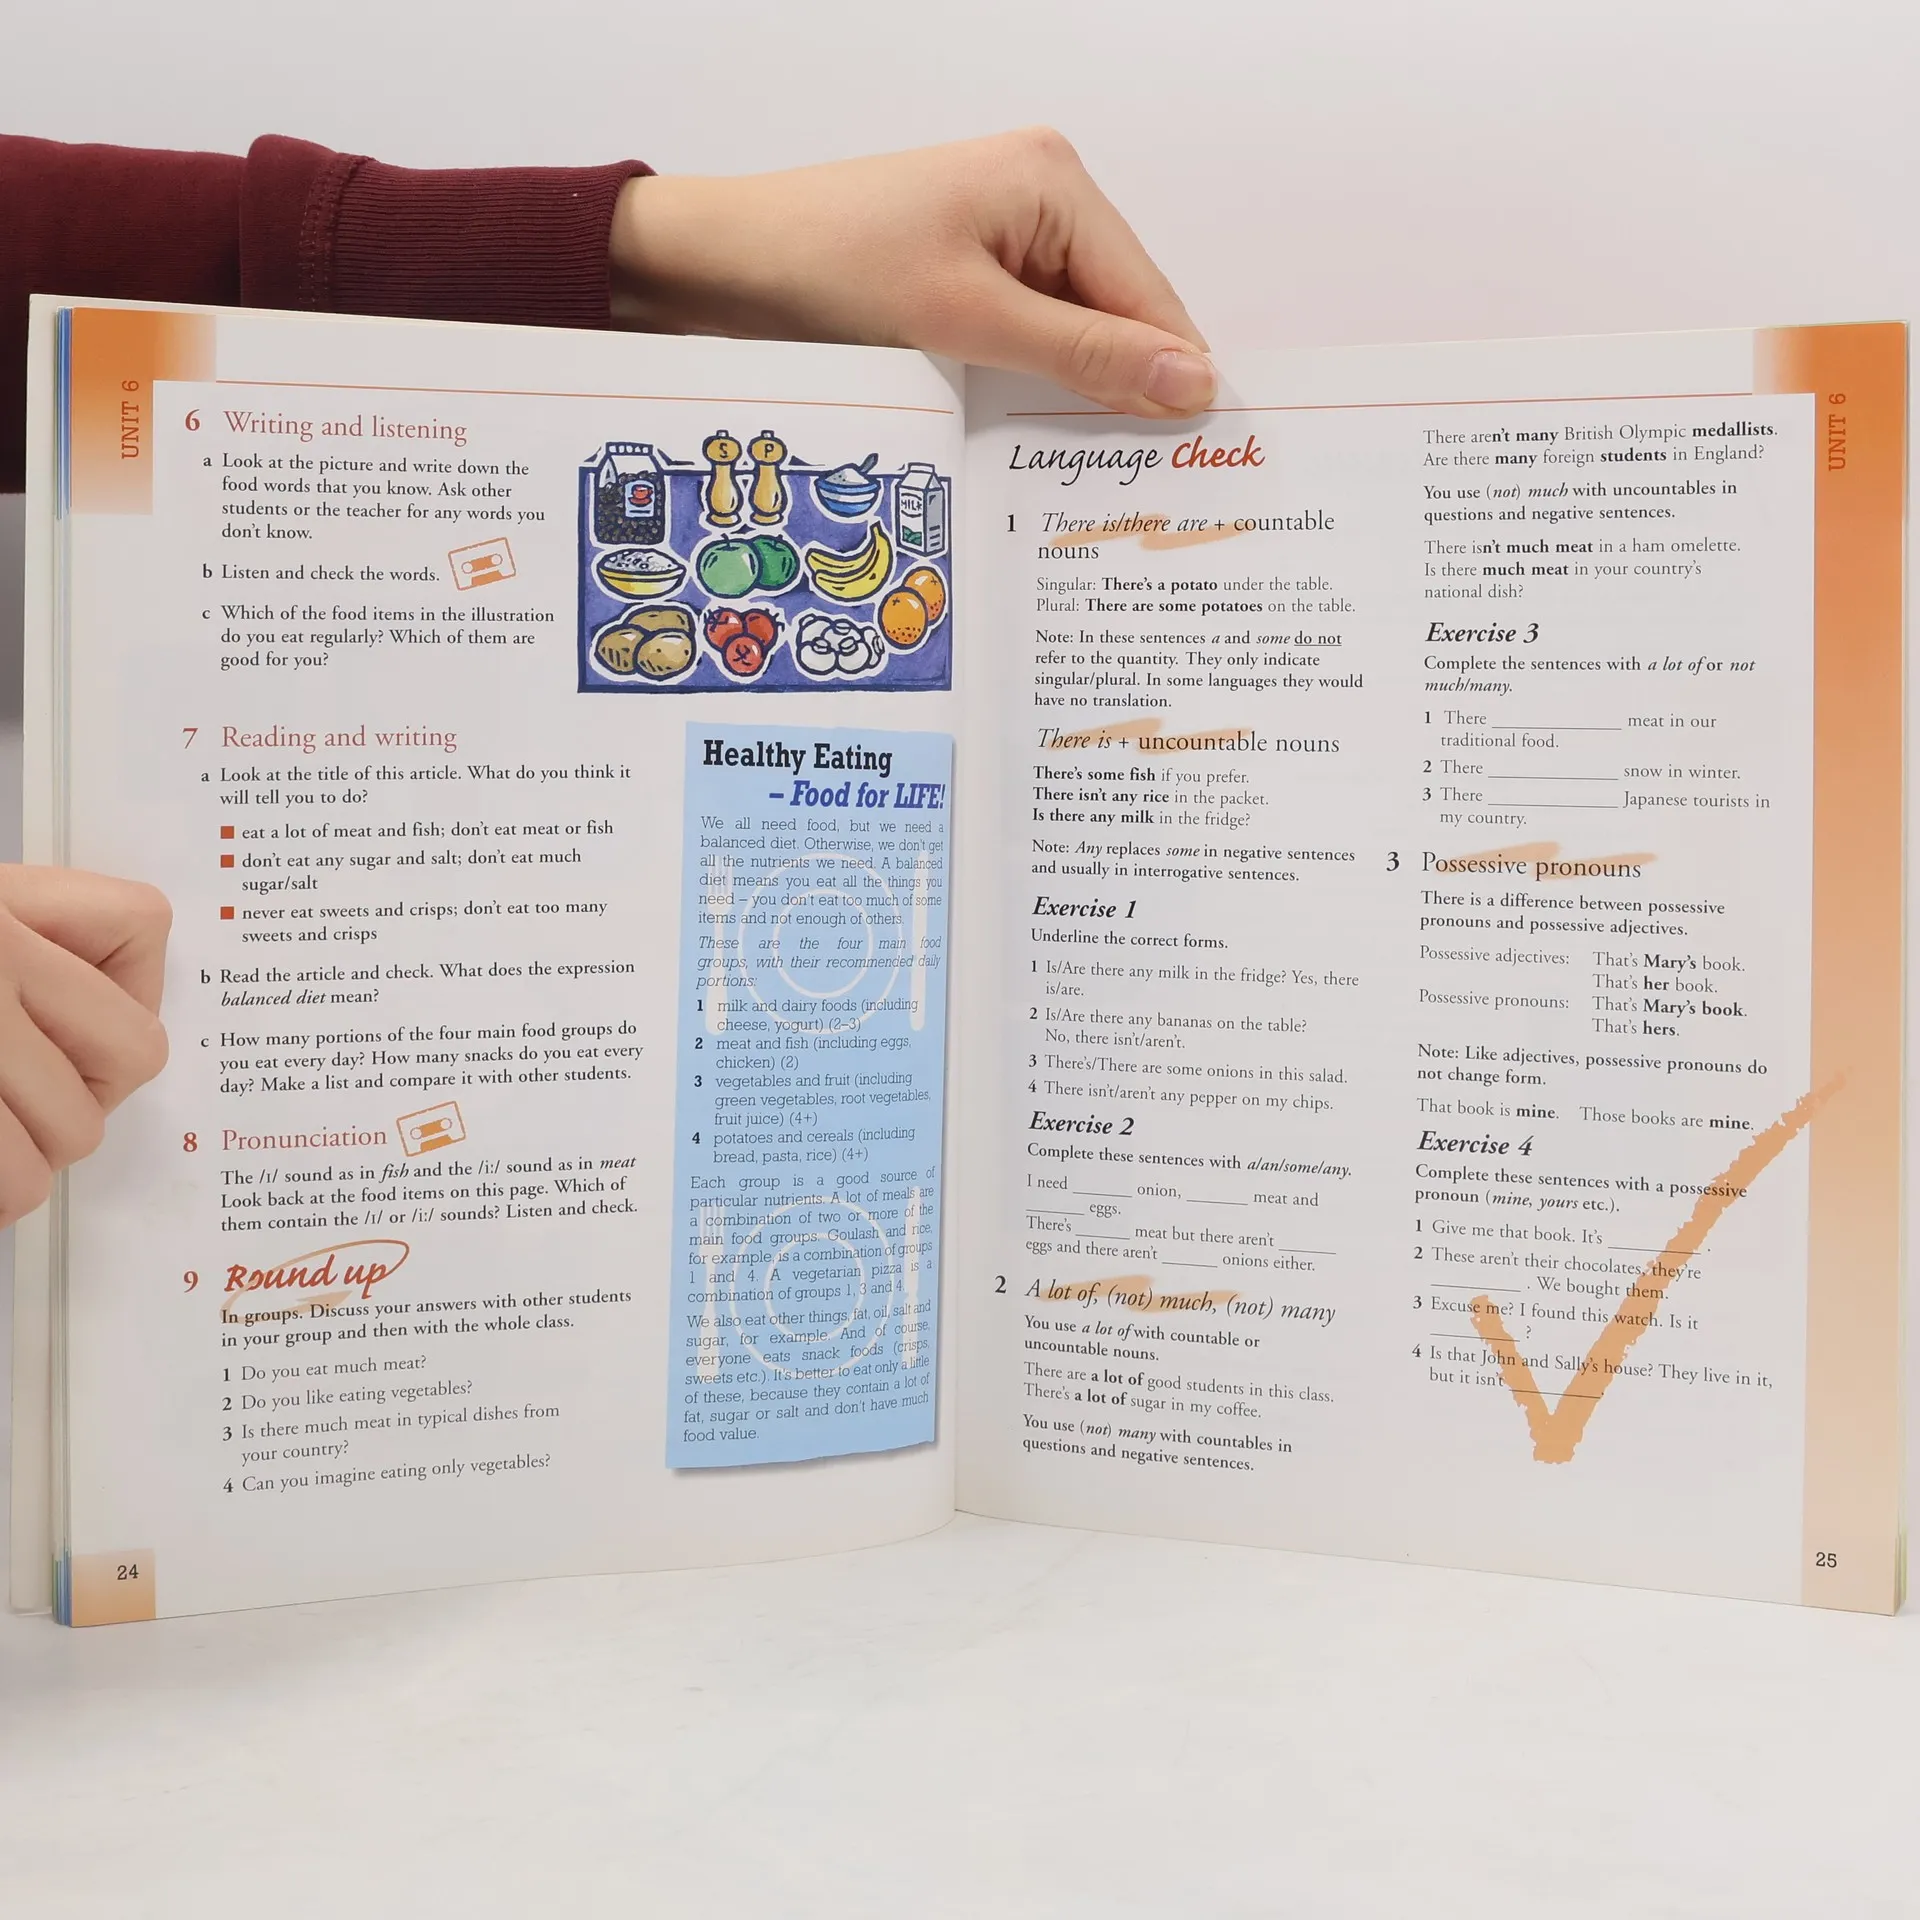 UNIT 6
6 Writing and listening
a Look at the picture and write down the
food words that you know. Ask other
students or the teacher for any words you
don't know.
b Listen and check the words.
c Which of the food items in the illustration
do you eat regularly? Which of them are
good for you?
S P
MILK
7 Reading and writing
a Look at the title of this article. What do you think it
will tell you to do?
eat a lot of meat and fish; don't eat meat or fish
don't eat any sugar and salt; don't eat much
sugar/salt
never eat sweets and crisps; don't eat too many
sweets and crisps
b Read the article and check. What does the expression
balanced diet mean?
c How many portions of the four main food groups do
you eat every day? How many snacks do you eat every
day? Make a list and compare it with other students.
8 Pronunciation
The /ɪ/ sound as in fish and the /i:/ sound as in meat
Look back at the food items on this page. Which of
them contain the /ɪ/ or /i:/ sounds? Listen and check.
9 Round up
In groups. Discuss your answers with other students
in your group and then with the whole class.
1 Do you eat much meat?
2 Do you like eating vegetables?
3 Is there much meat in typical dishes from
your country?
4 Can you imagine eating only vegetables?
24
Healthy Eating
– Food for LIFE!
We all need food, but we need a
balanced diet. Otherwise, we don't get
all the nutrients we need. A balanced
diet means you eat all the things you
need – you don't eat too much of some
items and not enough of others.
These are the four main food
groups, with their recommended daily
portions:
1 milk and dairy foods (including
cheese, yogurt) (2–3)
2 meat and fish (including eggs,
chicken) (2)
3 vegetables and fruit (including
green vegetables, root vegetables,
fruit juice) (4+)
4 potatoes and cereals (including
bread, pasta, rice) (4+)
Each group is a good source of
particular nutrients. A lot of meals are
a combination of two or more of the
main food groups. Goulash and rice,
for example, is a combination of groups
1 and 4. A vegetarian pizza is a
combination of groups 1, 3 and 4.
We also eat other things, fat, oil, salt and
sugar, for example. And of course,
everyone eats snack foods (crisps,
sweets etc.). It's better to eat only a little
of these, because they contain a lot of
fat, sugar or salt and don't have much
food value.
Language Check
1 There is/there are + countable
nouns
Singular: There's a potato under the table.
Plural: There are some potatoes on the table.
Note: In these sentences a and some do not
refer to the quantity. They only indicate
singular/plural. In some languages they would
have no translation.
There is + uncountable nouns
There's some fish if you prefer.
There isn't any rice in the packet.
Is there any milk in the fridge?
Note: Any replaces some in negative sentences
and usually in interrogative sentences.
Exercise 1
Underline the correct forms.
1 Is/Are there any milk in the fridge? Yes, there
is/are.
2 Is/Are there any bananas on the table?
No, there isn't/aren't.
3 There's/There are some onions in this salad.
4 There isn't/aren't any pepper on my chips.
Exercise 2
Complete these sentences with a/an/some/any.
I need ______ onion, ______ meat and
______ eggs.
There's ______ meat but there aren't ______
eggs and there aren't ______ onions either.
2 A lot of, (not) much, (not) many
You use a lot of with countable or
uncountable nouns.
There are a lot of good students in this class.
There's a lot of sugar in my coffee.
You use (not) many with countables in
questions and negative sentences.
There aren't many British Olympic medallists.
Are there many foreign students in England?
You use (not) much with uncountables in
questions and negative sentences.
There isn't much meat in a ham omelette.
Is there much meat in your country's
national dish?
Exercise 3
Complete the sentences with a lot of or not
much/many.
1 There ______ meat in our
traditional food.
2 There ______ snow in winter.
3 There ______ Japanese tourists in
my country.
3 Possessive pronouns
There is a difference between possessive
pronouns and possessive adjectives.
Possessive adjectives: That's Mary's book.
That's her book.
Possessive pronouns: That's Mary's book.
That's hers.
Note: Like adjectives, possessive pronouns do
not change form.
That book is mine. Those books are mine.
Exercise 4
Complete these sentences with a possessive
pronoun (mine, yours etc.).
1 Give me that book. It's ______ .
2 These aren't their chocolates, they're
______ . We bought them.
3 Excuse me? I found this watch. Is it
______ ?
4 Is that John and Sally's house? They live in it,
but it isn't ______.
UNIT 6
25